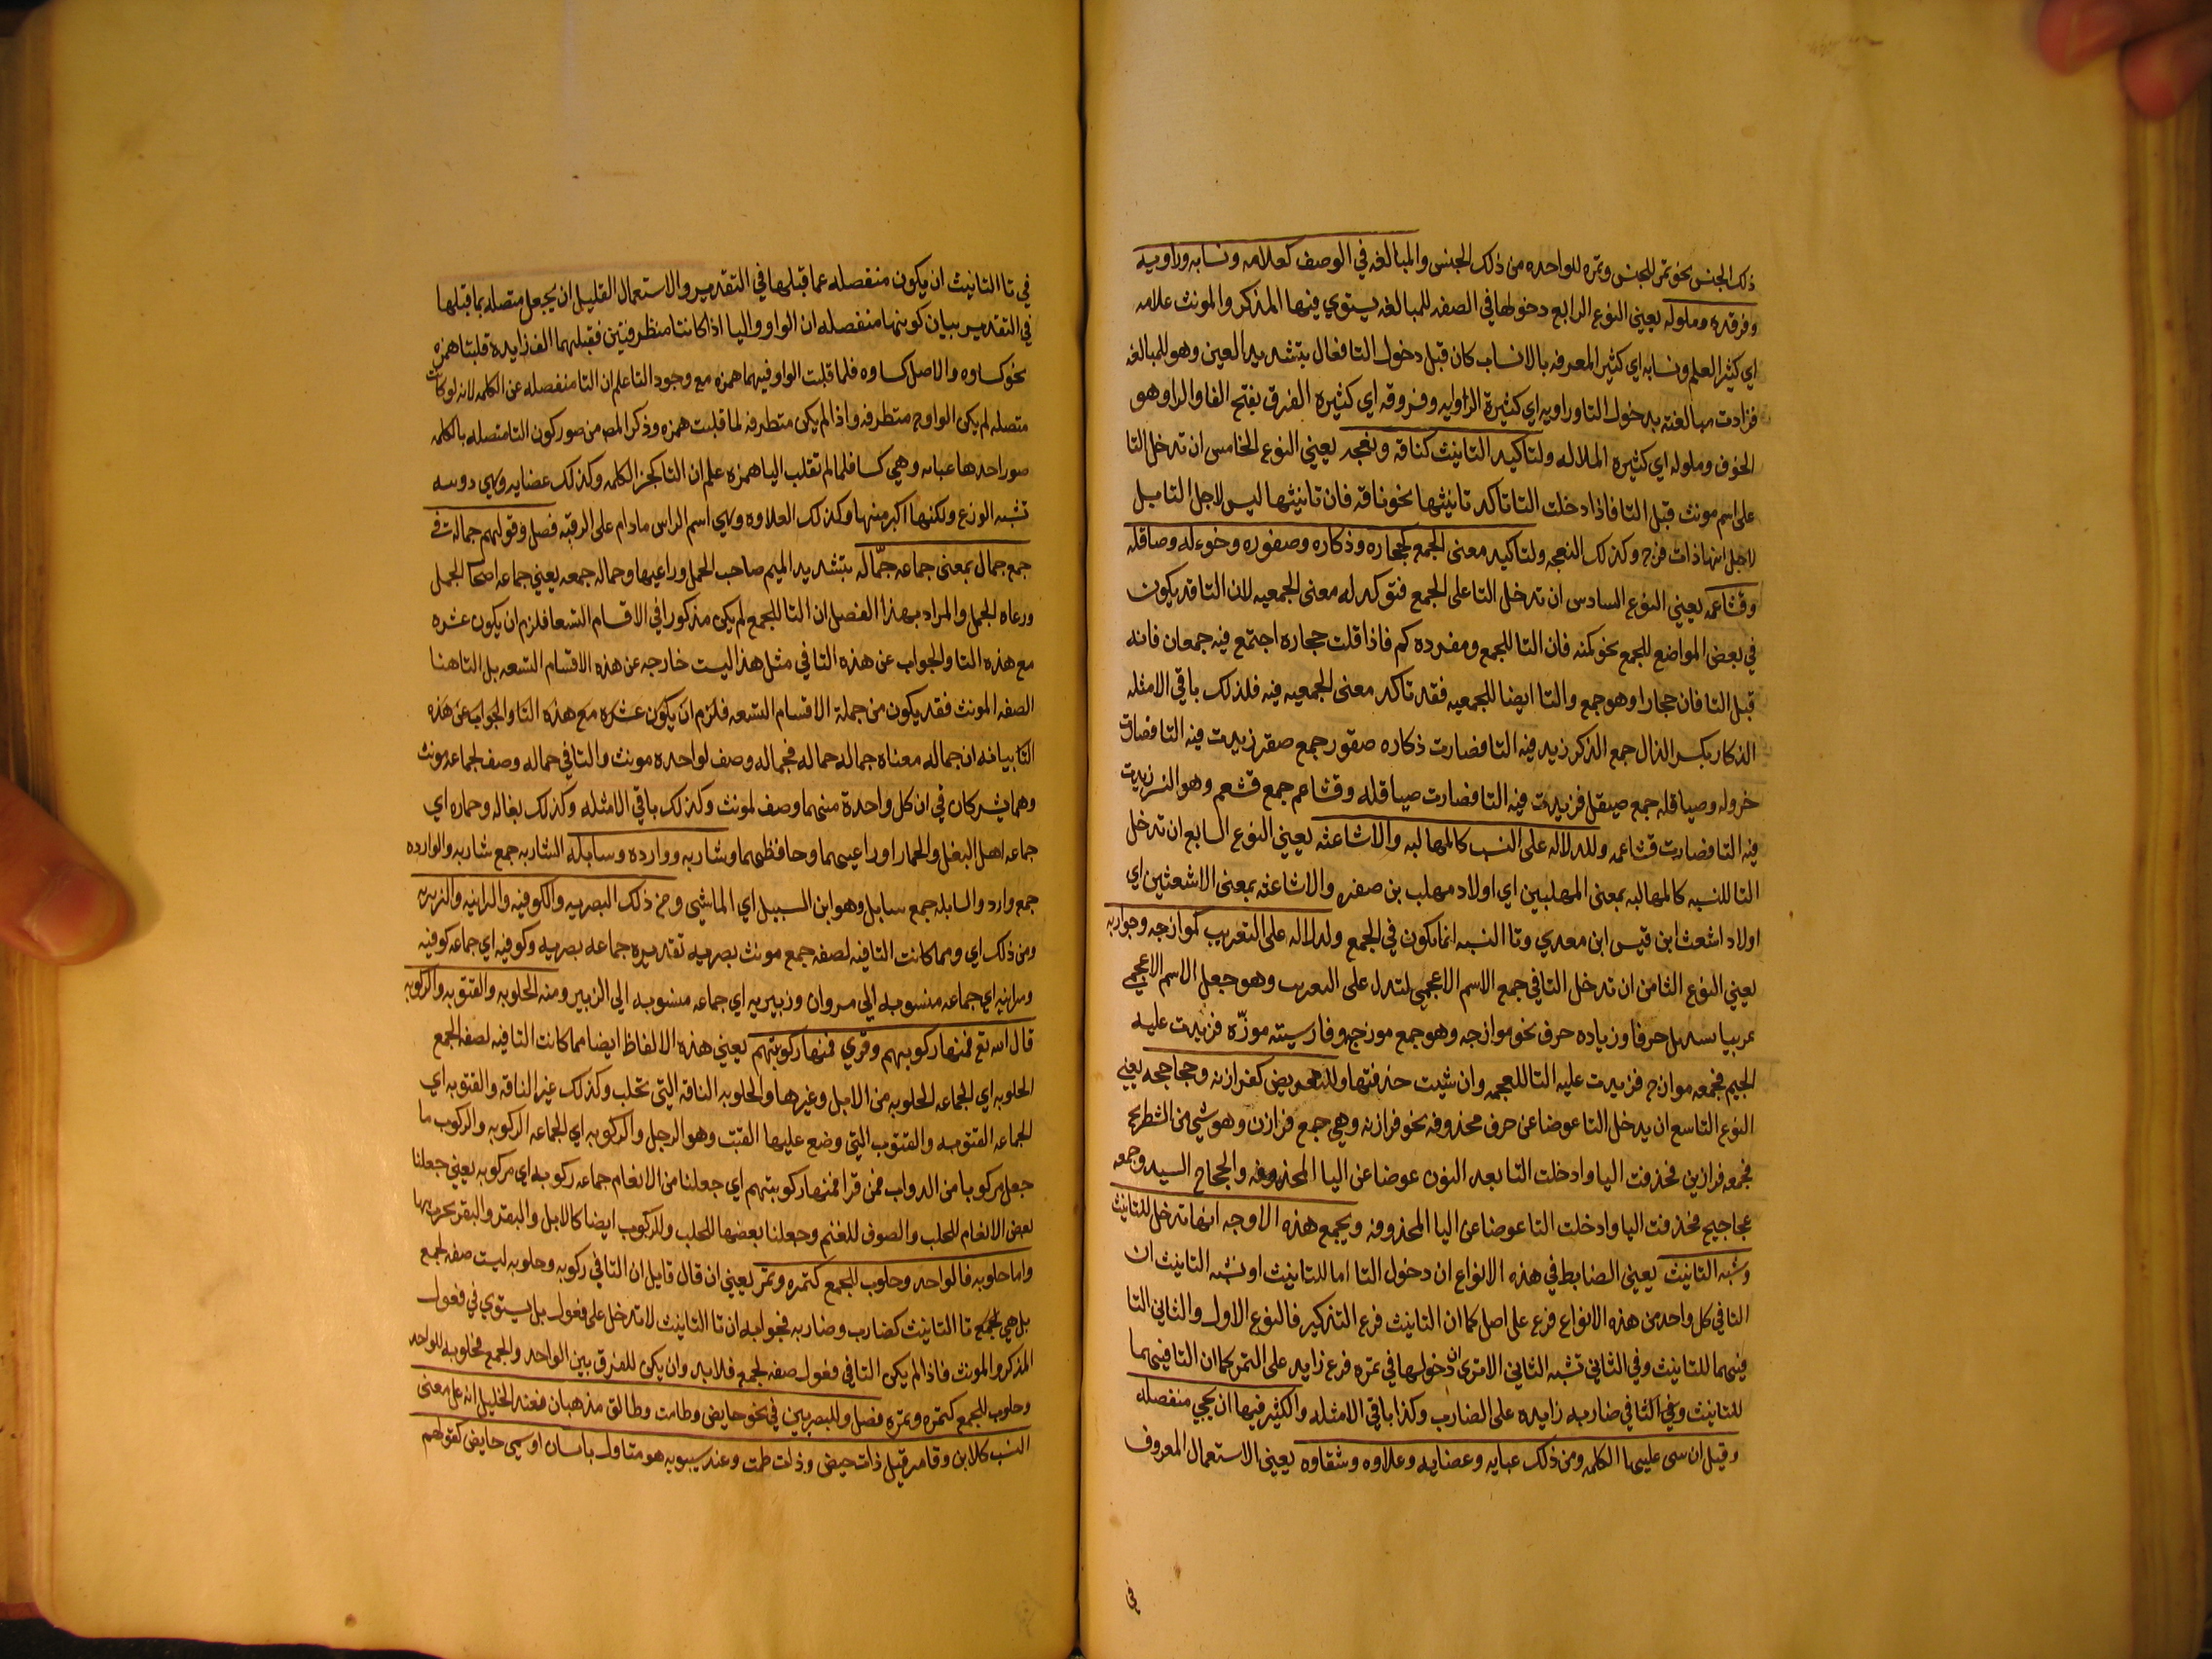 ذلك الجنس نحو تمر للجنس وتمره للواحده من ذلك الجنس والمبالغه في الوصف كعلامه ونسابه وراويه
وفروقه وملوله يعني النوع الرابع دخولها في الصفه للمبالغه يستوي فيها المذكر والمونث علامه
اي كثير العلم ونسابه اي كثير المعرفه بالانساب كان قبل دخول التا فعال بتشديد العين وهو للمبالغه
فزادت مبالغته بدخول التا وراويه اي كثيرة الراويه وفروقه اي كثيره الفرق بفتح الفا والرا وهو
الخوف وملوله اي كثيره الملاله ولتاكيد التانيث كناقه ونعجه يعني النوع الخامس ان تدخل التا
على اسم مونث قبل التا فاذا دخلت التا تاكد تانيثها نحو ناقه فان تانيثها ليس لاجل التا بل
لاجل انها ذات فرج وكذلك النعجه ولتاكيد معنى الجمع كحجاره وذكاره وصقوره وخوءله وصاقله
وقشاعمه يعني النوع السادس ان تدخل التا على الجمع فتوكد له معنى الجمعيه لان التا قد يكون
في بعض المواضع للجمع نحو كمئه فان التا للجمع ومفرده كم فاذا قلت حجاره اجتمع فيه جمعان فانه
قبل التا فان حجارا وهو جمع والتا ايضا للجمعيه فقد تاكد معنى الجمعيه فيه فلذلك باقي الامثله
الذكار بكسر الذال جمع الذكر زيد فيه التا فصارت ذكاره صقور جمع صقر زيدت فيه التا فصارت
خروله وصياقله جمع صيقل فزيدت فيه التا فصارت صياقله وقشاعم جمع قشعم وهو النسر زيدت
فيه التا فصارت قشاعمه وللدلاله على النسب كالمهالبه والاشاعثه يعني النوع السابع ان تدخل
التا للنسبه كالمهالبه بمعنى المهلبين اي اولاد مهلب بن صفره والاشاعثه بمعنى الاشعثين اي
اولاد اشعث ابن قيس ابن معدي وتا النسبه انما يكون في الجمع ولدلاله على التعريب كموازجه وجواربه
يعني النوع الثامن ان تدخل التا في جمع الاسم الاعجمي لتدل على التعريب وهو جعل الاسم الاعجمي
عربيا حرفا وزياده حرف نحو موازجه وهو جمع موزج وفارسيته موزه فزيدت عليه
الجيم فجمعه موازج فزيدت عليه التا للعجمه وان شيت حذفتها وللتعويض كفرازنه وحجاجحه يعني
النوع التاسع ان يدخل التا عوضا عن حرف محذوفه نحو فرازنه وهي جمع فرازن وهو شي من الشطرنج
فجمعه فرازين فحذفت اليا وادخلت التا بعد النون عوضا عن اليا المحذوفه والجحجاح السيد وجمعه
حجاجيح فحذفت اليا وادخلت التا عوضا عن اليا المحذوفه ويجمع هذه الاوجه انها تدخل للتانيث
وشبه التانيث يعني الضابط في هذه الانواع ان دخول التا اما للتانيث او شبه التانيث ان
التا في كل واحد من هذه الانواع فرع على اصل كما ان التانيث فرع التذكير فالنوع الاول والثاني التا
فيهما للتانيث وفي الثاني تشبه الثاني الا ترى ان دخولها في تمره فرع زايد على التمر كما ان التا فيهما
للتانيث وفي التا في ضاربه زايده على الضارب وكذا باقي الامثله والكثير فيها ان يجي منفصله
وقيل ان عليها الكلمه ومن ذلك عبايه وعضايه وعلاوه وشقاوه يعني الاستعمال المعروف
في
في تا التانيث ان يكون منفصله عما قبلها في التقدير والاستعمال القليل ان يجعل متصله بما قبلها
في التقدير بيان كونها منفصله ان الواو واليا اذا كانتا متطرفتين فقبلهما الف زايدة قلبتا همزه
نحو كساوه والاصل كساوه فلما قلبت الواو فيهما همزه مع وجود التا علم ان التا منفصله عن الكلمه لانه لو كانت
متصله لم يكن الواو متطرفه واذا لم يكن متطرفه لما قلبت همزه وذكر المص من صور كون التا متصله بالكلمه
صور احدها عبايه وهي كسا فلما لم تقلب اليا همزه علم ان التا كجز الكلمه وكذلك عضايه وهي دويبه
تشبه الوزغ ولكنها اكبر منها وكذلك العلاوه وهي اسم الراس ما دام على الرقبه فصل وقولهم جماله في
جمع جمال بمعنى جماعه جمّاله بتشديد الميم صاحب الجمل وراعيها وجماله جمعه يعني جماعه اصحاب الجمل
ورعاه الجمل والمراد بهذا الفصل ان التا للجمع لم يكن مذكورا في الاقسام التسعه فلزم ان يكون عشره
مع هذه التا والجواب عن هذه التا في مثل هذا ليست خارجه عن هذه الاقسام التسعه بل التا هنا
الصفه المونث فقد يكون من جملة الاقسام التسعه فلزم ان يكون عشره مع هذه التا والجواب عن هذه
التا بيانه ان جماله معناه جماله جماله فجماله وصف لواحده مونث والتا في جماله وصف لجماعه مونث
وهما يشتركان في ان كل واحدة منهما وصف لمونث وكذلك باقي الامثله وكذلك بغاله وحماره اي
جماعه اهل البغل والحمار اوراعيهما وحافظهما وشاربه ووارده وسابله الشاربه جمع شاربه والوارده
جمع وارد والسابله جمع سابل وهو ابن السبيل اي الماشي ومن ذلك البصريه والكوفيه والمروانيه والزبيريه
ومن ذلك اي ومما كانت التا فيه لصفه جمع مونث بصريه تقديره جماعه بصريه وكوفيه اي جماعه كوفيه
ومروانيه اي جماعه منسوبه الى مروان وزبيريه اي جماعه منسوبه الى الزبير ومنه الحلوبه والقتوبه والركوبه
قال الله تع فمنها ركوبهم وقري فمنها ركوبتهم يعني هذه الالفاظ ايضا مما كانت التا فيه لصفه الجمع
الحلوبه اي الجماعه الحلوبه من الابل وغيرها والحلوبه الناقه التي تحلب وكذلك غير الناقه والقتوبه اي
الجماعه القتوبه والقتوب التي وضع عليها القتب وهو الرحل والركوبه اي الجماعه الركوبه والركوب ما
جعل مركوبا من الدواب فمن قرا فمنها ركوبتهم اي جعلنا من الانعام جماعه ركوبه اي مركوبه يعني جعلنا
بعض الانعام للحلب والصوف للغنم وجعلنا بعضها للحلب وللركوب ايضا كالابل والبقر والبقر يحرث بها
واما حلوبه فالواحد وحلوب للجمع كتمره وتمر يعني ان قال قايل ان التا في ركوبه وحلوبه ليست صفه لجمع
بل هي لجمع تا التانيث كضارب وضاربه فجوابه ان تا التانيث لا تدخل على فعول بل يستوي في فعول
المذكر والمونث فاذا لم يكن التا في فعول صفه لجمع فلابد وان يكن للفرق بين الواحد والجمع فحلوبه للواحد
وحلوب للجمع كتمره وتمره فصل وللبصريين في نحو حايض وطامث وطالق مذهبان فعند الخليل انه على معنى
النسب كلابن وتامر قيل ذات حيض وذات طمث وعند سيبويه هو متاول بانسان او شي حايض كقولهم